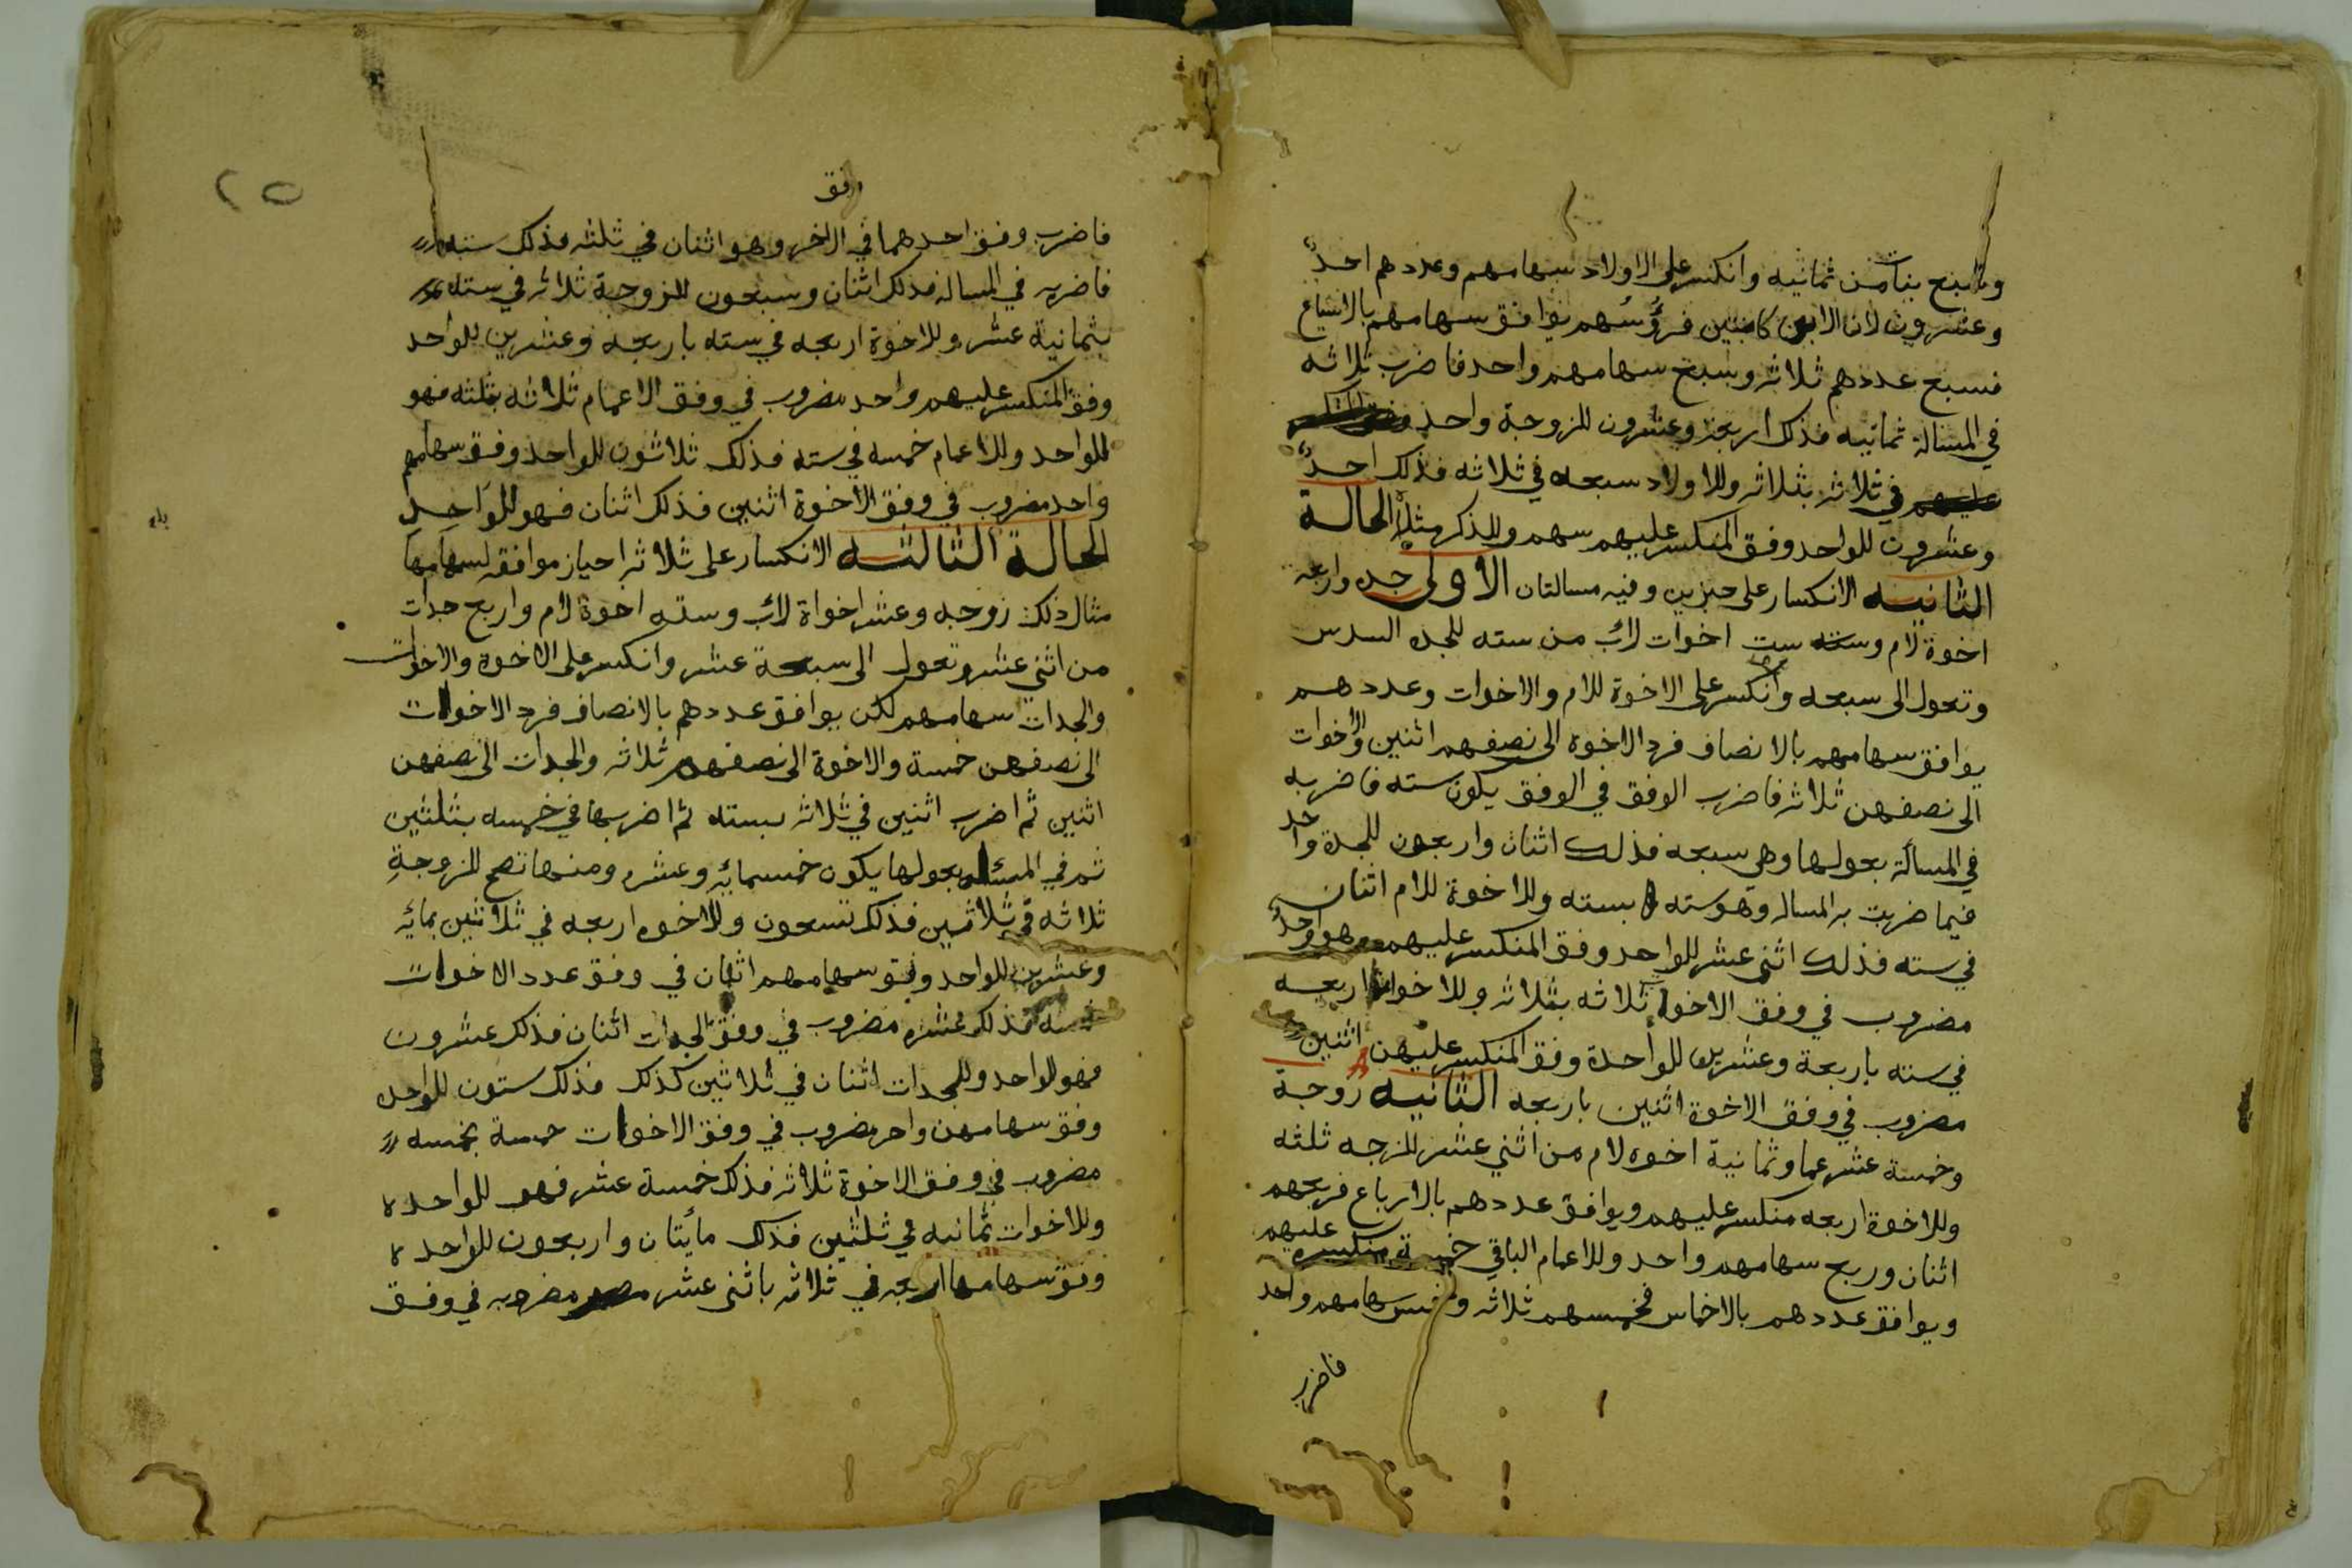 وتسع بنات من ثمانيه وانكسر على الاولاد سهامهم وعددهم احد
وعشرون لان الابن كابنتين فرؤسهم يوافق سهامهم بالاسباع
فسبع عددهم ثلاثه وسبع سهامهم واحد فاضرب ثلاثه
في المسالة ثمانيه فذلك اربعة وعشرون للزوجة واحد
في ثلاثه بثلاثه وللاولاد سبعه في ثلاثه فذلك احد
وعشرون للواحد وفق المنكسر عليهم سهم وللذكر مثلا الحالة
الثانيه الانكسار على حيزين وفيه مسالتان الاولى جده واربعه
اخوة لام وست اخوات لاب من سته للجده السدس
وتعول الى سبعه وانكسر على الاخوة للام والاخوات وعددهم
يوافق سهامهم بالانصاف فرد الاخوة الى نصفهم اثنين والاخوات
الى نصفهن ثلاثه فاضرب الوفق في الوفق يكون سته فاضربه
في المسألة بعولها وهي سبعه فذلك اثنان واربعون للجدة واحد
فيما ضربت به المساله وهو سته بسته وللاخوة للام اثنان
في سته فذلك اثنى عشر للواحد وفق المنكسر عليهم وهو واحد
مضروب في وفق الاخوات ثلاثه بثلاثه وللاخوات اربعه
في سته باربعة وعشرين للواحدة وفق المنكسر عليهن اثنين
مضروب في وفق الاخوة اثنين باربعه الثانيه زوجة
وخمسة عشر عما وثمانية اخوه لام من اثني عشر للزجه ثلثه
وللاخوة اربعه منكسر عليهم ويوافق عددهم بالارباع فربعهم
اثنان وربع سهامهم واحد وللاعمام الباقي خمسة منكسره عليهم
ويوافق عددهم بالاخماس فخمسهم ثلاثه وخمس سهامهم واحد
فاضرب
٢٥
وفق
فاضرب وفق احدهما في الاخر وهو اثنان في ثلثه فذلك سته
فاضربه في المساله فذلك اثنان وسبعون للزوجة ثلاثه في سته
بثمانية عشر وللاخوة اربعه في سته باربعه وعشرين للواحد
وفق المنكسر عليهم واحد مضروب في وفق الاعمام ثلاثه بثلثه فهو
للواحد وللاعمام خمسه في سته فذلك ثلاثون للواحد وفق سهامهم
واحد مضروب في وفق الاخوة اثنين فذلك اثنان فهو للواحد
الحالة الثالثه الانكسار على ثلاثه احياز موافقه لسهامها
مثال ذلك زوجه وعشر اخواة لاب وسته اخوة لام واربع جدات
من اثني عشر وتعول الى سبعة عشر وانكسر على الاخوة والاخوات
والجدات سهامهم لكن يوافق عددهم بالانصاف فرد الاخوات
الى نصفهن خمسة والاخوة الى نصفهم ثلاثه والجدات الى نصفهن
اثنين ثم اضرب اثنين في ثلاثه بسته ثم اضربها في خمسه بثلثين
ثم في المسئله بعولها يكون خمسمايه وعشره ومنها تصح للزوجة
ثلاثه في ثلاثين فذلك تسعون وللاخوه اربعه في ثلاثين بمايه
وعشرين للواحد وفق سهامهم اثنان في وفق عدد الاخوات
خمسه فذلك عشره مضروب في وفق الجدات اثنان فذلك عشرون
فهو للواحد وللجدات اثنان في ثلاثين كذلك فذلك ستون للواحده
وفق سهامهن واحد مضروب في وفق الاخوات خمسة بخمسه
مضروب في وفق الاخوة ثلاثه فذلك خمسة عشر فهو للواحده
وللاخوات ثمانيه في ثلثين فذلك مأيتان واربعون للواحده
وفق سهامها اربعه في ثلاثه باثنى عشر مضروبه في وفق